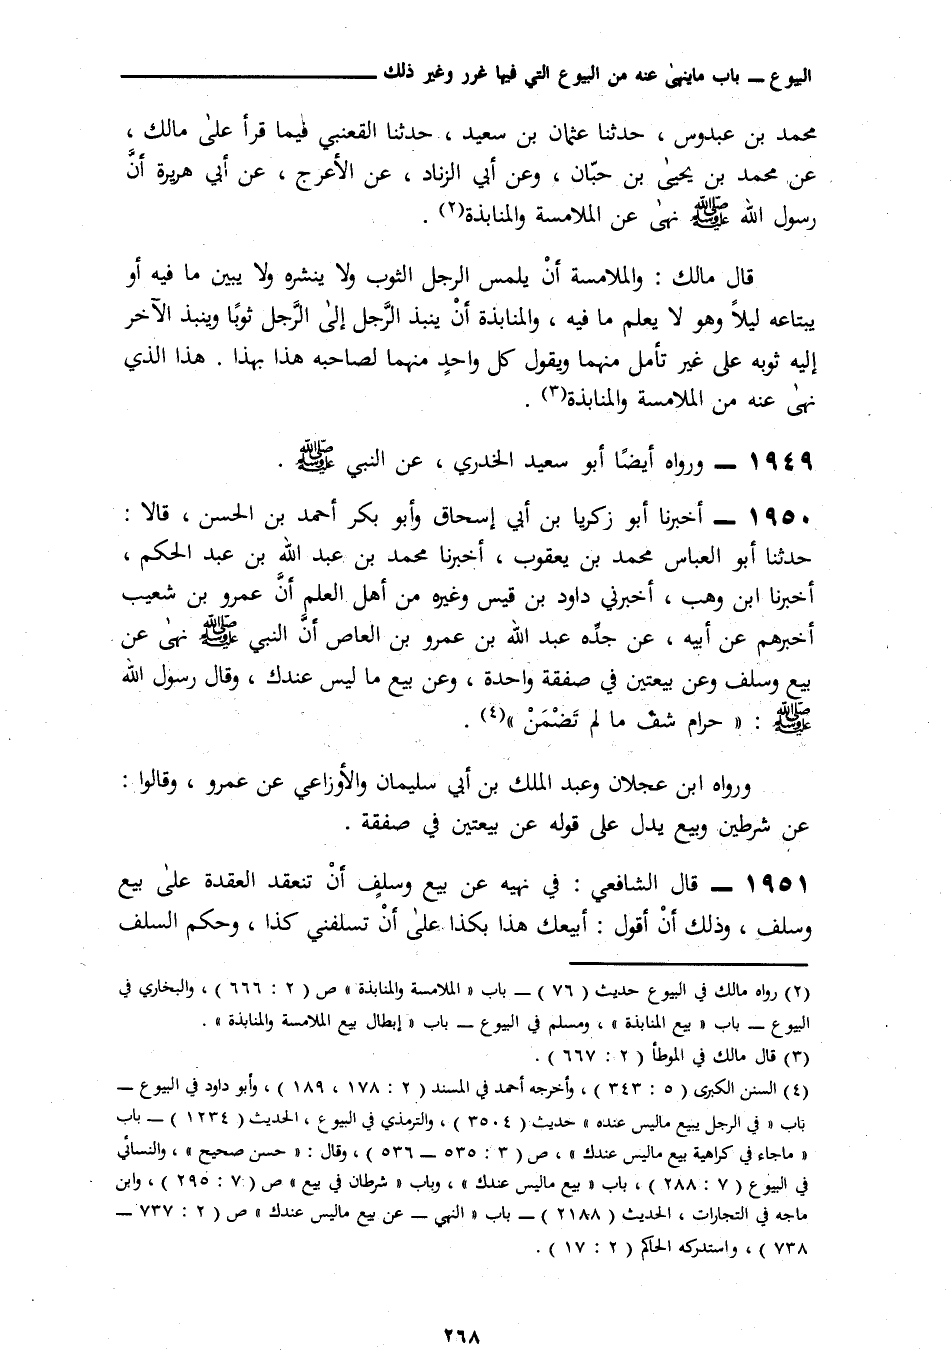 البيوع ـــ باب ماينهىٰ عنه من البيوع التي فيها غرر وغير ذلك
محمد بن عبدوس ، حدثنا عثمان بن سعيد ، حدثنا القعنبي فيما قرأ علىٰ مالك ،
عن محمد بن يحيىٰ بن حبّان ، وعن أبي الزناد ، عن الأعرج ، عن أبي هريرة أنَّ
رسول الله ﷺ نهىٰ عن الملامسة والمنابذة(٢) .
قال مالك : والملامسة أنْ يلمس الرجل الثوب ولا ينشره ولا يبين ما فيه أو
يبتاعه ليلاً وهو لا يعلم ما فيه ، والمنابذة أنْ ينبذ الرَّجل إلىٰ الرَّجل ثوبًا وينبذ الآخر
إليه ثوبه على غير تأمل منهما ويقول كل واحدٍ منهما لصاحبه هذا بهذا . هذا الذي
نهىٰ عنه من الملامسة والمنابذة(٣) .
١٩٤٩ ـــ ورواه أيضًا أبو سعيد الخدري ، عن النبي ﷺ .
١٩٥٠ ـــ أخبرنا أبو زكريا بن أبي إسحاق وأبو بكر أحمد بن الحسن ، قالا :
حدثنا أبو العباس محمد بن يعقوب ، أخبرنا محمد بن عبد الله بن عبد الحكم ،
أخبرنا ابن وهب ، أخبرني داود بن قيس وغيره من أهل العلم أنَّ عمرو بن شعيب
أخبرهم عن أبيه ، عن جدِّه عبد الله بن عمرو بن العاص أنَّ النبي ﷺ نهىٰ عن
بيع وسلف وعن بيعتين في صفقة واحدة ، وعن بيع ما ليس عندك ، وقال رسول الله
ﷺ : « حرام شفّ ما لم تَضْمَنْ »(٤) .
ورواه ابن عجلان وعبد الملك بن أبي سليمان والأوزاعي عن عمرو ، وقالوا :
عن شرطين وبيع يدل على قوله عن بيعتين في صفقة .
١٩٥١ ـــ قال الشافعي : في نهيه عن بيع وسلفٍ أنْ تنعقد العقدة علىٰ بيع
وسلف ، وذلك أنْ أقول : أبيعك هذا بكذا علىٰ أنْ تسلفني كذا ، وحكم السلف
(٢) رواه مالك في البيوع حديث ( ٧٦ ) ـــ باب « الملامسة والمنابذة » ص ( ٢ : ٦٦٦ ) ، والبخاري في
البيوع ـــ باب « بيع المنابذة » ، ومسلم في البيوع ـــ باب « إبطال بيع الملامسة والمنابذة » .
(٣) قال مالك في الموطأ ( ٢ : ٦٦٧ ) .
(٤) السنن الكبرى ( ٥ : ٣٤٣ ) ، وأخرجه أحمد في المسند ( ٢ : ١٧٨ ، ١٨٩ ) ، وأبو داود في البيوع ـــ
باب « في الرجل يبيع ماليس عنده » حديث ( ٣٥٠٤ ) ، والترمذي في البيوع ، الحديث ( ١٢٣٤ ) ـــ باب
« ماجاء في كراهية بيع ماليس عندك » ، ص ( ٣ : ٥٣٥ ـــ ٥٣٦ ) ، وقال : « حسن صحيح » ، والنسائي
في البيوع ( ٧ : ٢٨٨ ) ، باب « بيع ماليس عندك » ، وباب « شرطان في بيع » ص ( ٧ : ٢٩٥ ) ، وابن
ماجه في التجارات ، الحديث ( ٢١٨٨ ) ـــ باب « النهي ـــ عن بيع ماليس عندك » ص ( ٢ : ٧٣٧ ـــ
٧٣٨ ) ، واستدركه الحاكم ( ٢ : ١٧ ) .
٢٦٨